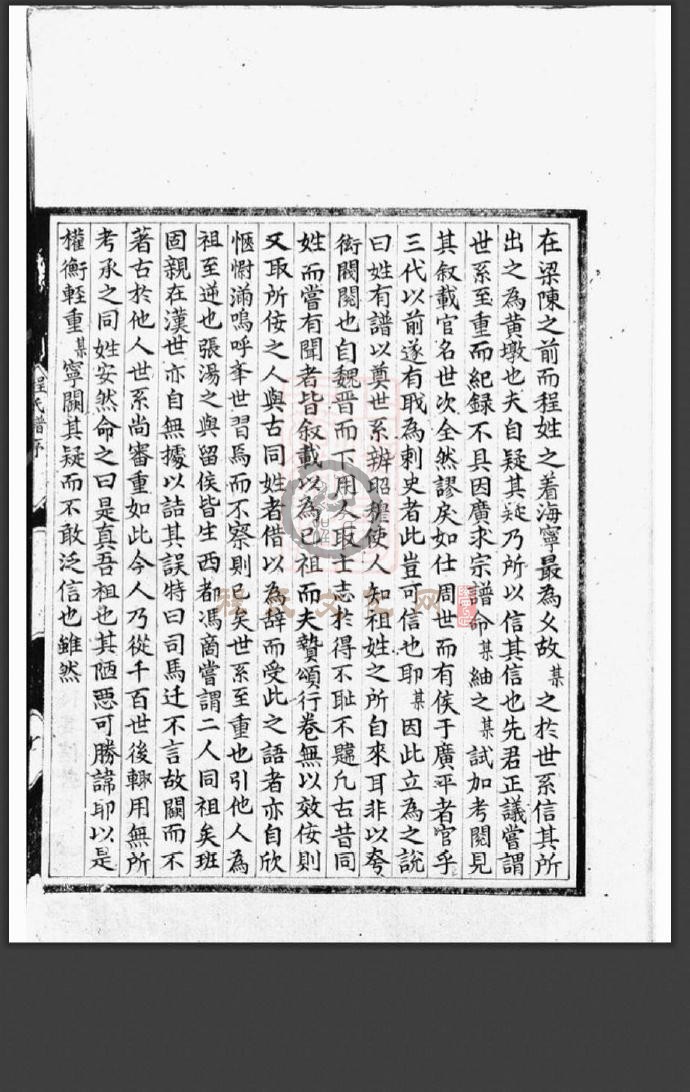 在梁陳之前而程姓之着海寧最為乆故某之於世系信其所
出之為黄墩也夫自疑其疑乃所以信其信也先君正議嘗謂
世系至重而紀録不具因廣求宗譜命某紬之某試加考閲見
其叙載官名世次全然謬戾如仕周世而有侯于廣平者官乎
三代以前遂有戢為刺史者此豈可信也耶某因此立為之說
曰姓有譜以奠世系辨昭穆使人知祖姓之所自來耳非以夸
銜閥閲也自魏晋而下用人取士志於得不耻不韙凢古昔同
姓而嘗有聞者皆叙載以為已祖而夫贄頌行卷無以效佞則
又取所佞之人與古同姓者借以為辞而受此之語者亦自欣
愜懰滿嗚呼夆世習焉而不察則已矣世系至重也引他人為
祖至逆也張湯之與留侯皆生西都馮商嘗謂二人同祖矣班
固親在漢世亦自無據以詰其誤特曰司馬迁不言故闕而不
著古於他人世系尚審重如此今人乃從千百世後輙用無所
考承之同姓安然命之曰是真吾祖也其陋惡可勝諱耶以是
權衡軽重某寧闕其疑而不敢泛信也雖然
程氏譜序
程氏文化网